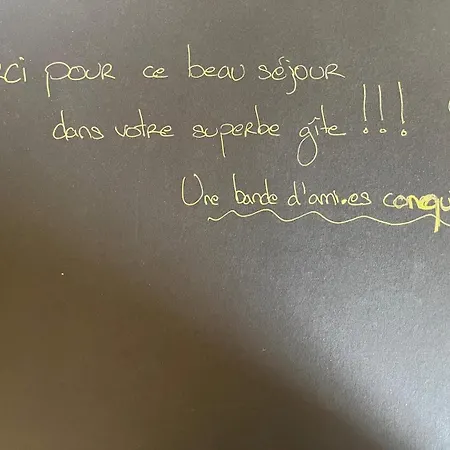 rci pour ce beau séjour
dans votre superbe gîte !!!
Une bande d'ami.es conqui